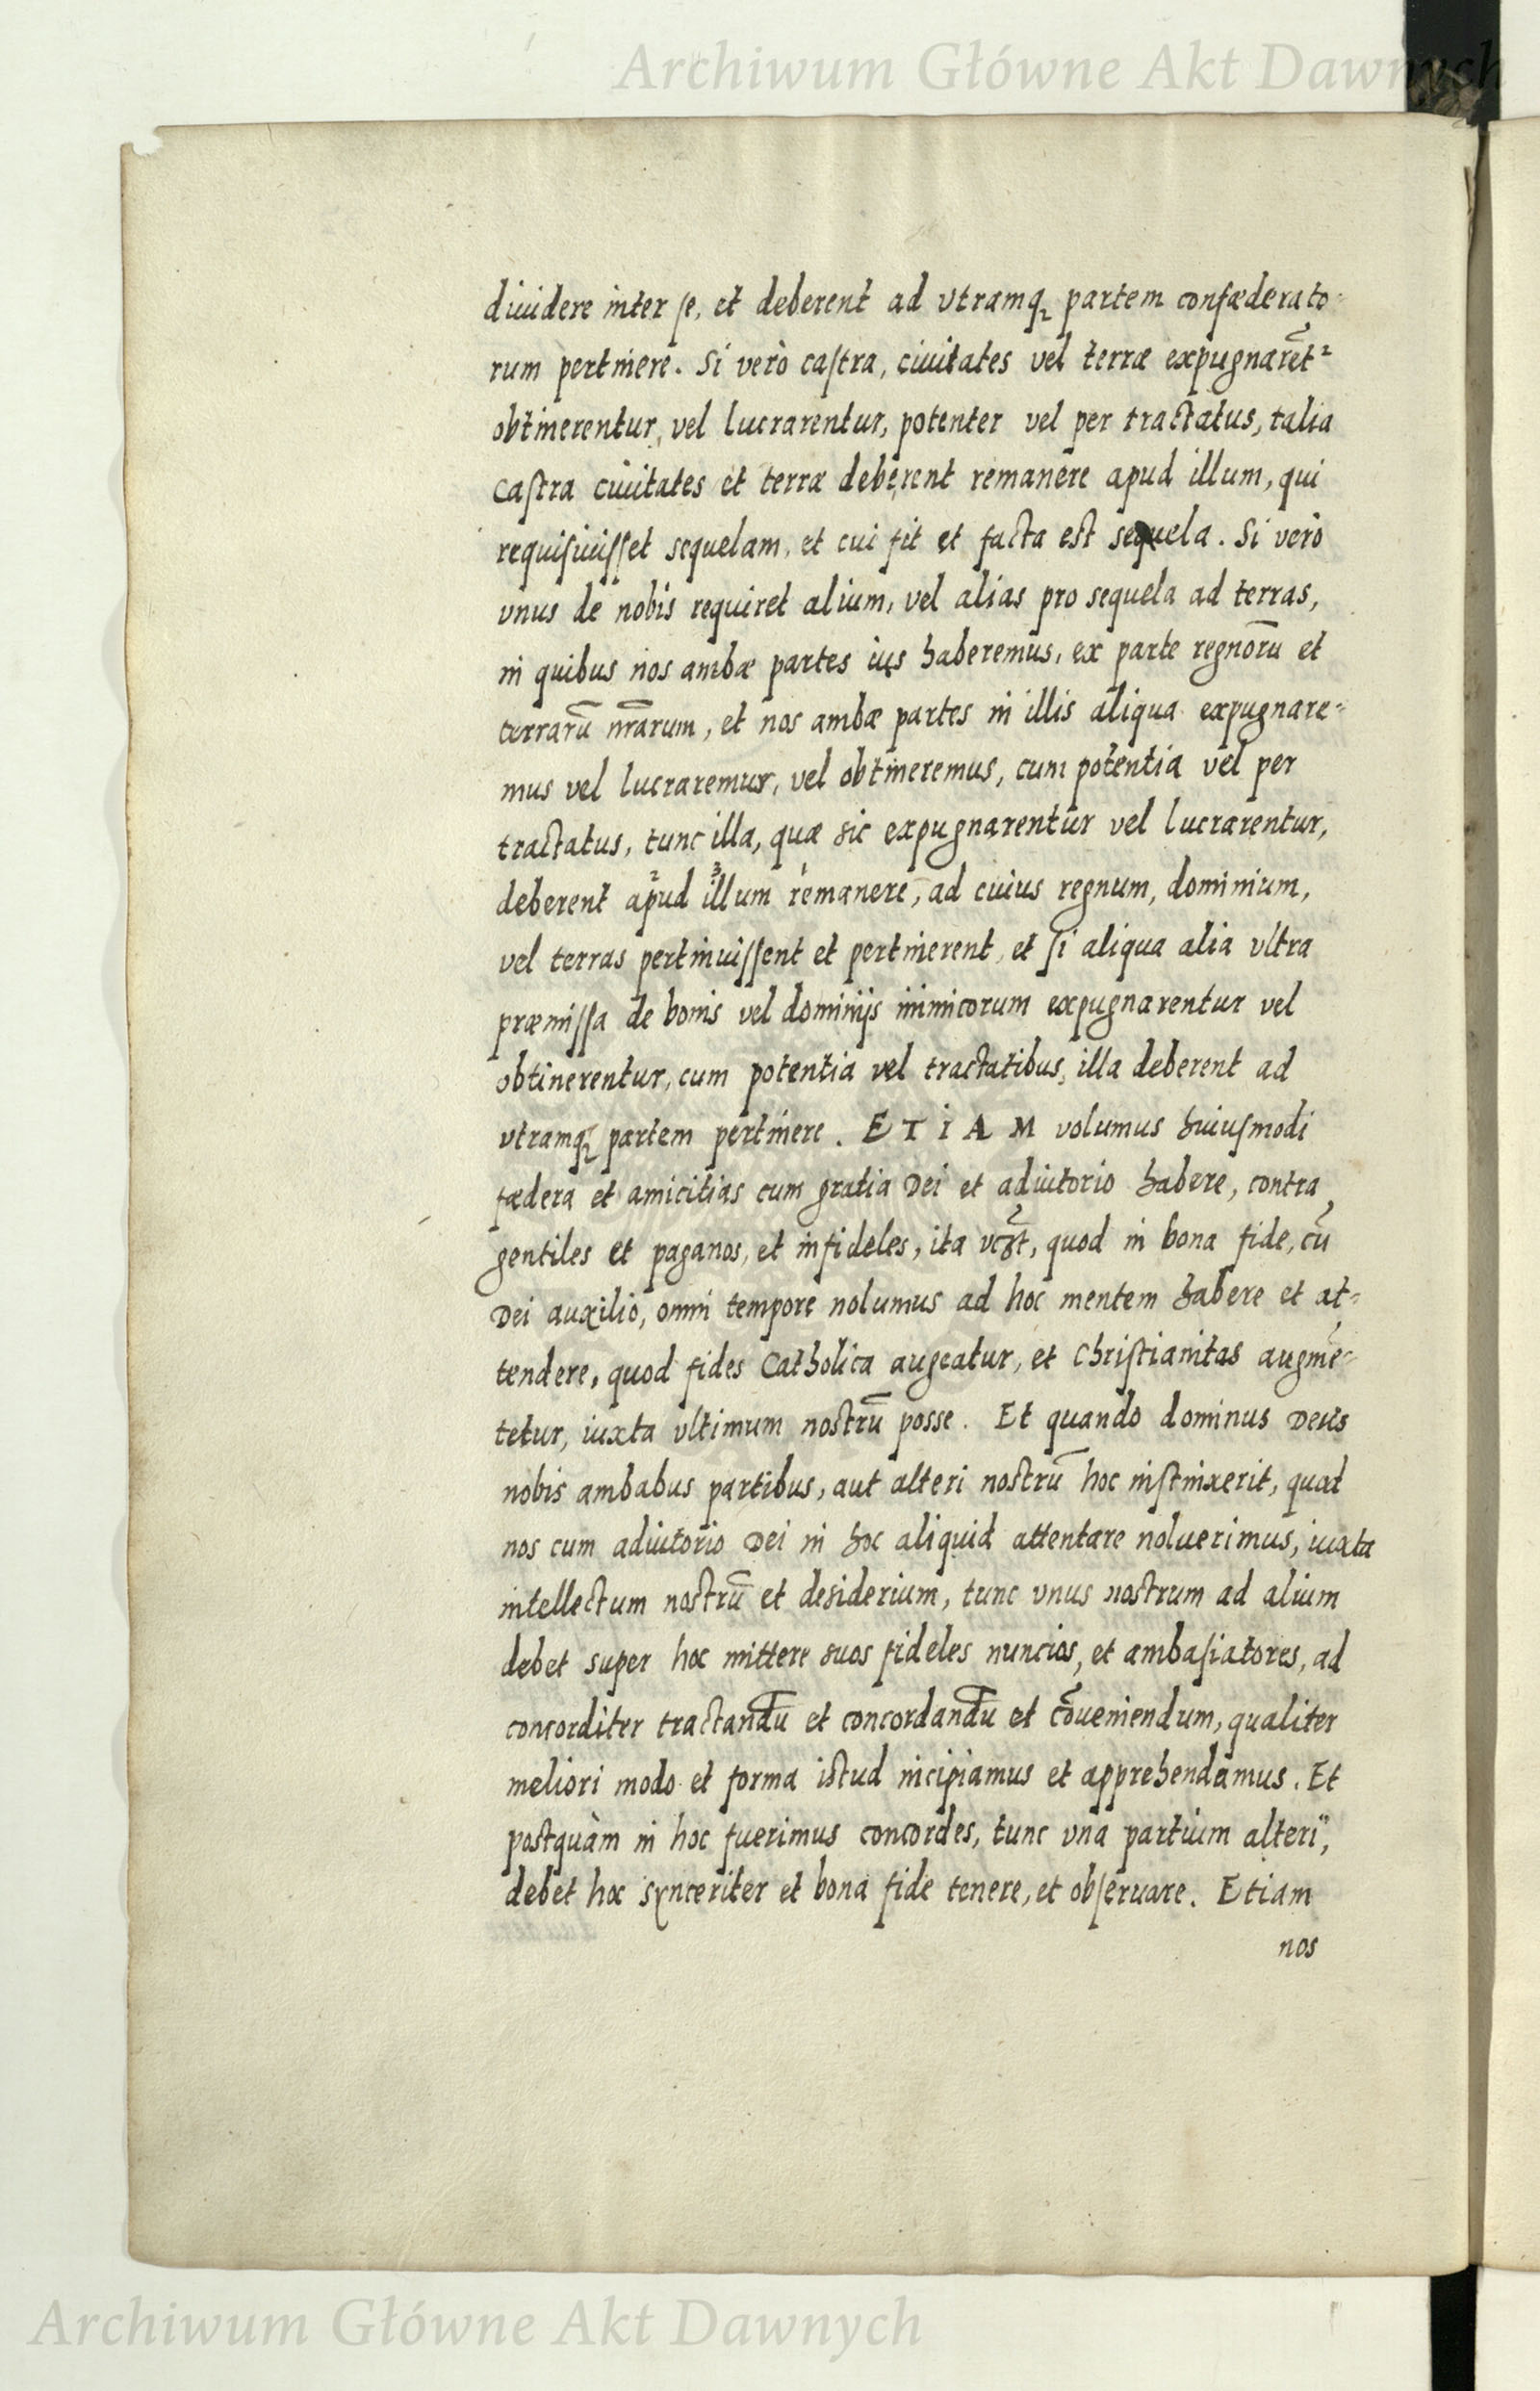 Archiwum Główne Akt Dawnych
diuidere inter ſe, et deberent ad vtramq₂ partem confæderato-
rum pertinere. Si verò caſtra, ciuitates vel terræ expugnarẽt²
obtinerentur, vel lucrarentur, potenter vel per tractatus, talia
caſtra ciuitates et terræ deberent remanere apud illum, qui
requiſiuiſſet sequelam, et cui fit et facta est sequela. Si verò
vnus de nobis requiret alium, vel alias pro sequela ad terras,
in quibus nos ambæ partes ius haberemus, ex parte regnorū et
terrarū nr̄arum, et nos ambæ partes in illis aliqua expugnare=
mus vel lucraremur, vel obtineremus, cum potentia vel per
tractatus, tunc illa, quæ sic expugnarentur vel lucrarentur,
deberent apud² illum³ remanere¹, ad cuius regnum, dominium,
vel terras pertinuiſſent et pertinerent, et ſi aliqua alia vltra
præmiſſa de bonis vel dominijs inimicorum expugnarentur vel
obtinerentur, cum potentia vel tractatibus, illa deberent ad
vtramq₂ partem pertinere. ETIAM volumus huiuſmodi
fædera et amicitias cum gratia Dei et adiutorio habere, contra
gentiles et paganos, et infideles, ita vcʒt, quod in bona fide, cū
Dei auxilio, omni tempore nolumus ad hoc mentem habere et at=
tendere, quod fides Catholica augeatur, et Chriſtianitas augmē=
tetur, iuxta vltimum nostrū posse. Et quando dominus Deus
nobis ambabus partibus, aut alteri nostrū hoc inſtinxerit, quod
nos cum adiutorio Dei in hoc aliquid attentare noluerimus, iuxta
intellectum nostrū et desiderium, tunc vnus nostrum ad alium
debet super hoc mittere suos fideles nuncios, et ambaſiatores, ad
concorditer tractandū et concordandū et cōueniendum, qualiter
meliori modo et forma istud incipiamus et apprehendamus. Et
postquàm in hoc fuerimus concordes, tunc vna partium alteri,
debet hoc synceriter et bona fide tenere, et obſeruare. Etiam
nos
Archiwum Główne Akt Dawnych